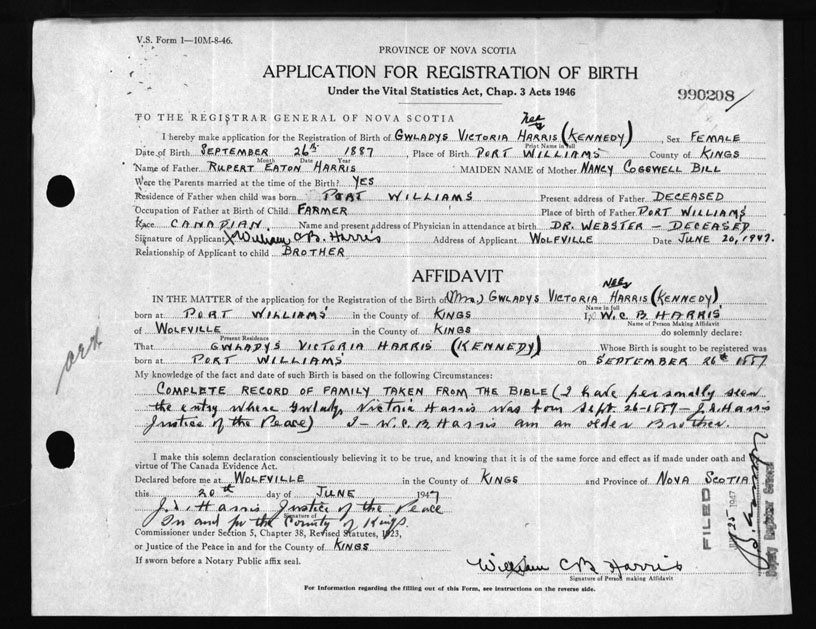 V.S. Form 1—10M-8-46.
PROVINCE OF NOVA SCOTIA
APPLICATION FOR REGISTRATION OF BIRTH
Under the Vital Statistics Act, Chap. 3 Acts 1946
990208
TO THE REGISTRAR GENERAL OF NOVA SCOTIA
nee
I hereby make application for the Registration of Birth of GWLADYS VICTORIA HARRIS (KENNEDY), Sex FEMALE
Print Name in full
Date of Birth SEPTEMBER 26th 1887, Place of Birth PORT WILLIAMS County of KINGS
Month Date Year
Name of Father RUPERT EATON HARRIS MAIDEN NAME of Mother NANCY COGSWELL BILL
Were the Parents married at the time of the Birth? YES
Residence of Father when child was born PORT WILLIAMS Present address of Father DECEASED
Occupation of Father at Birth of Child FARMER Place of birth of Father PORT WILLIAMS
Race CANADIAN Name and present address of Physician in attendance at birth DR. WEBSTER — DECEASED
Signature of Applicant X William C B. Harris Address of Applicant WOLFVILLE Date JUNE 20, 1947.
Relationship of Applicant to child BROTHER
AFFIDAVIT
NEE
IN THE MATTER of the application for the Registration of the Birth of (Mrs.) GWLADYS VICTORIA HARRIS (KENNEDY)
Name in full
born at PORT WILLIAMS in the County of KINGS I, W. C. B HARRIS
Name of Person Making Affidavit
of WOLFVILLE in the County of KINGS do solemnly declare:
Present Residence
That GWLADYS VICTORIA HARRIS (KENNEDY) Whose Birth is sought to be registered was
born at PORT WILLIAMS on SEPTEMBER 26th 1887
My knowledge of the fact and date of such Birth is based on the following Circumstances:
COMPLETE RECORD OF FAMILY TAKEN FROM THE BIBLE (I have personally seen
the entry where Gwladys Victoria Harris was born Sept. 26-1887 — J.D. Harris
Justice of the Peace) I - W. C. B. Harris am an older Brother.
I make this solemn declaration conscientiously believing it to be true, and knowing that it is of the same force and effect as if made under oath and
virtue of The Canada Evidence Act.
Declared before me at WOLFVILLE in the County of KINGS and Province of NOVA SCOTIA
this 20th day of JUNE 1947
J. D. Harris Justice of the Peace
Signature of
In and for the County of Kings.
Commissioner under Section 5, Chapter 38, Revised Statutes, 1923,
or Justice of the Peace in and for the County of KINGS
If sworn before a Notary Public affix seal.
William C B Harris
Signature of Person making Affidavit
For Information regarding the filling out of this Form, see instructions on the reverse side.
FILED
25 1947
Deputy Registrar General